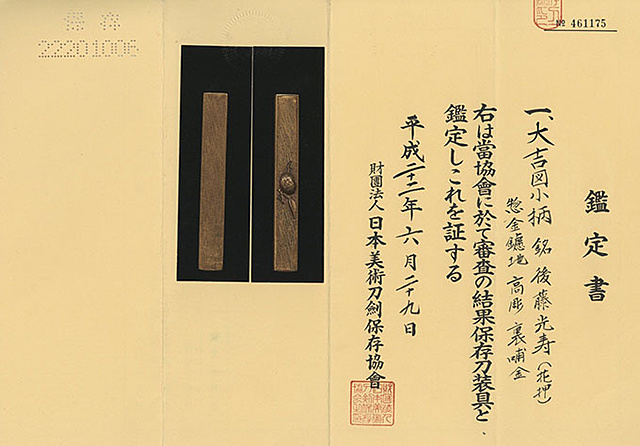 № 461175
鑑定書
一、大吉図小柄 銘 後藤光寿(花押)
惣金鑢地 高彫 裏哺金
右は當協會に於て審査の結果保存刀装具と
鑑定しこれを証する
平成二十二年六月二十九日
財團法人 日本美術刀劍保存協會
22201006